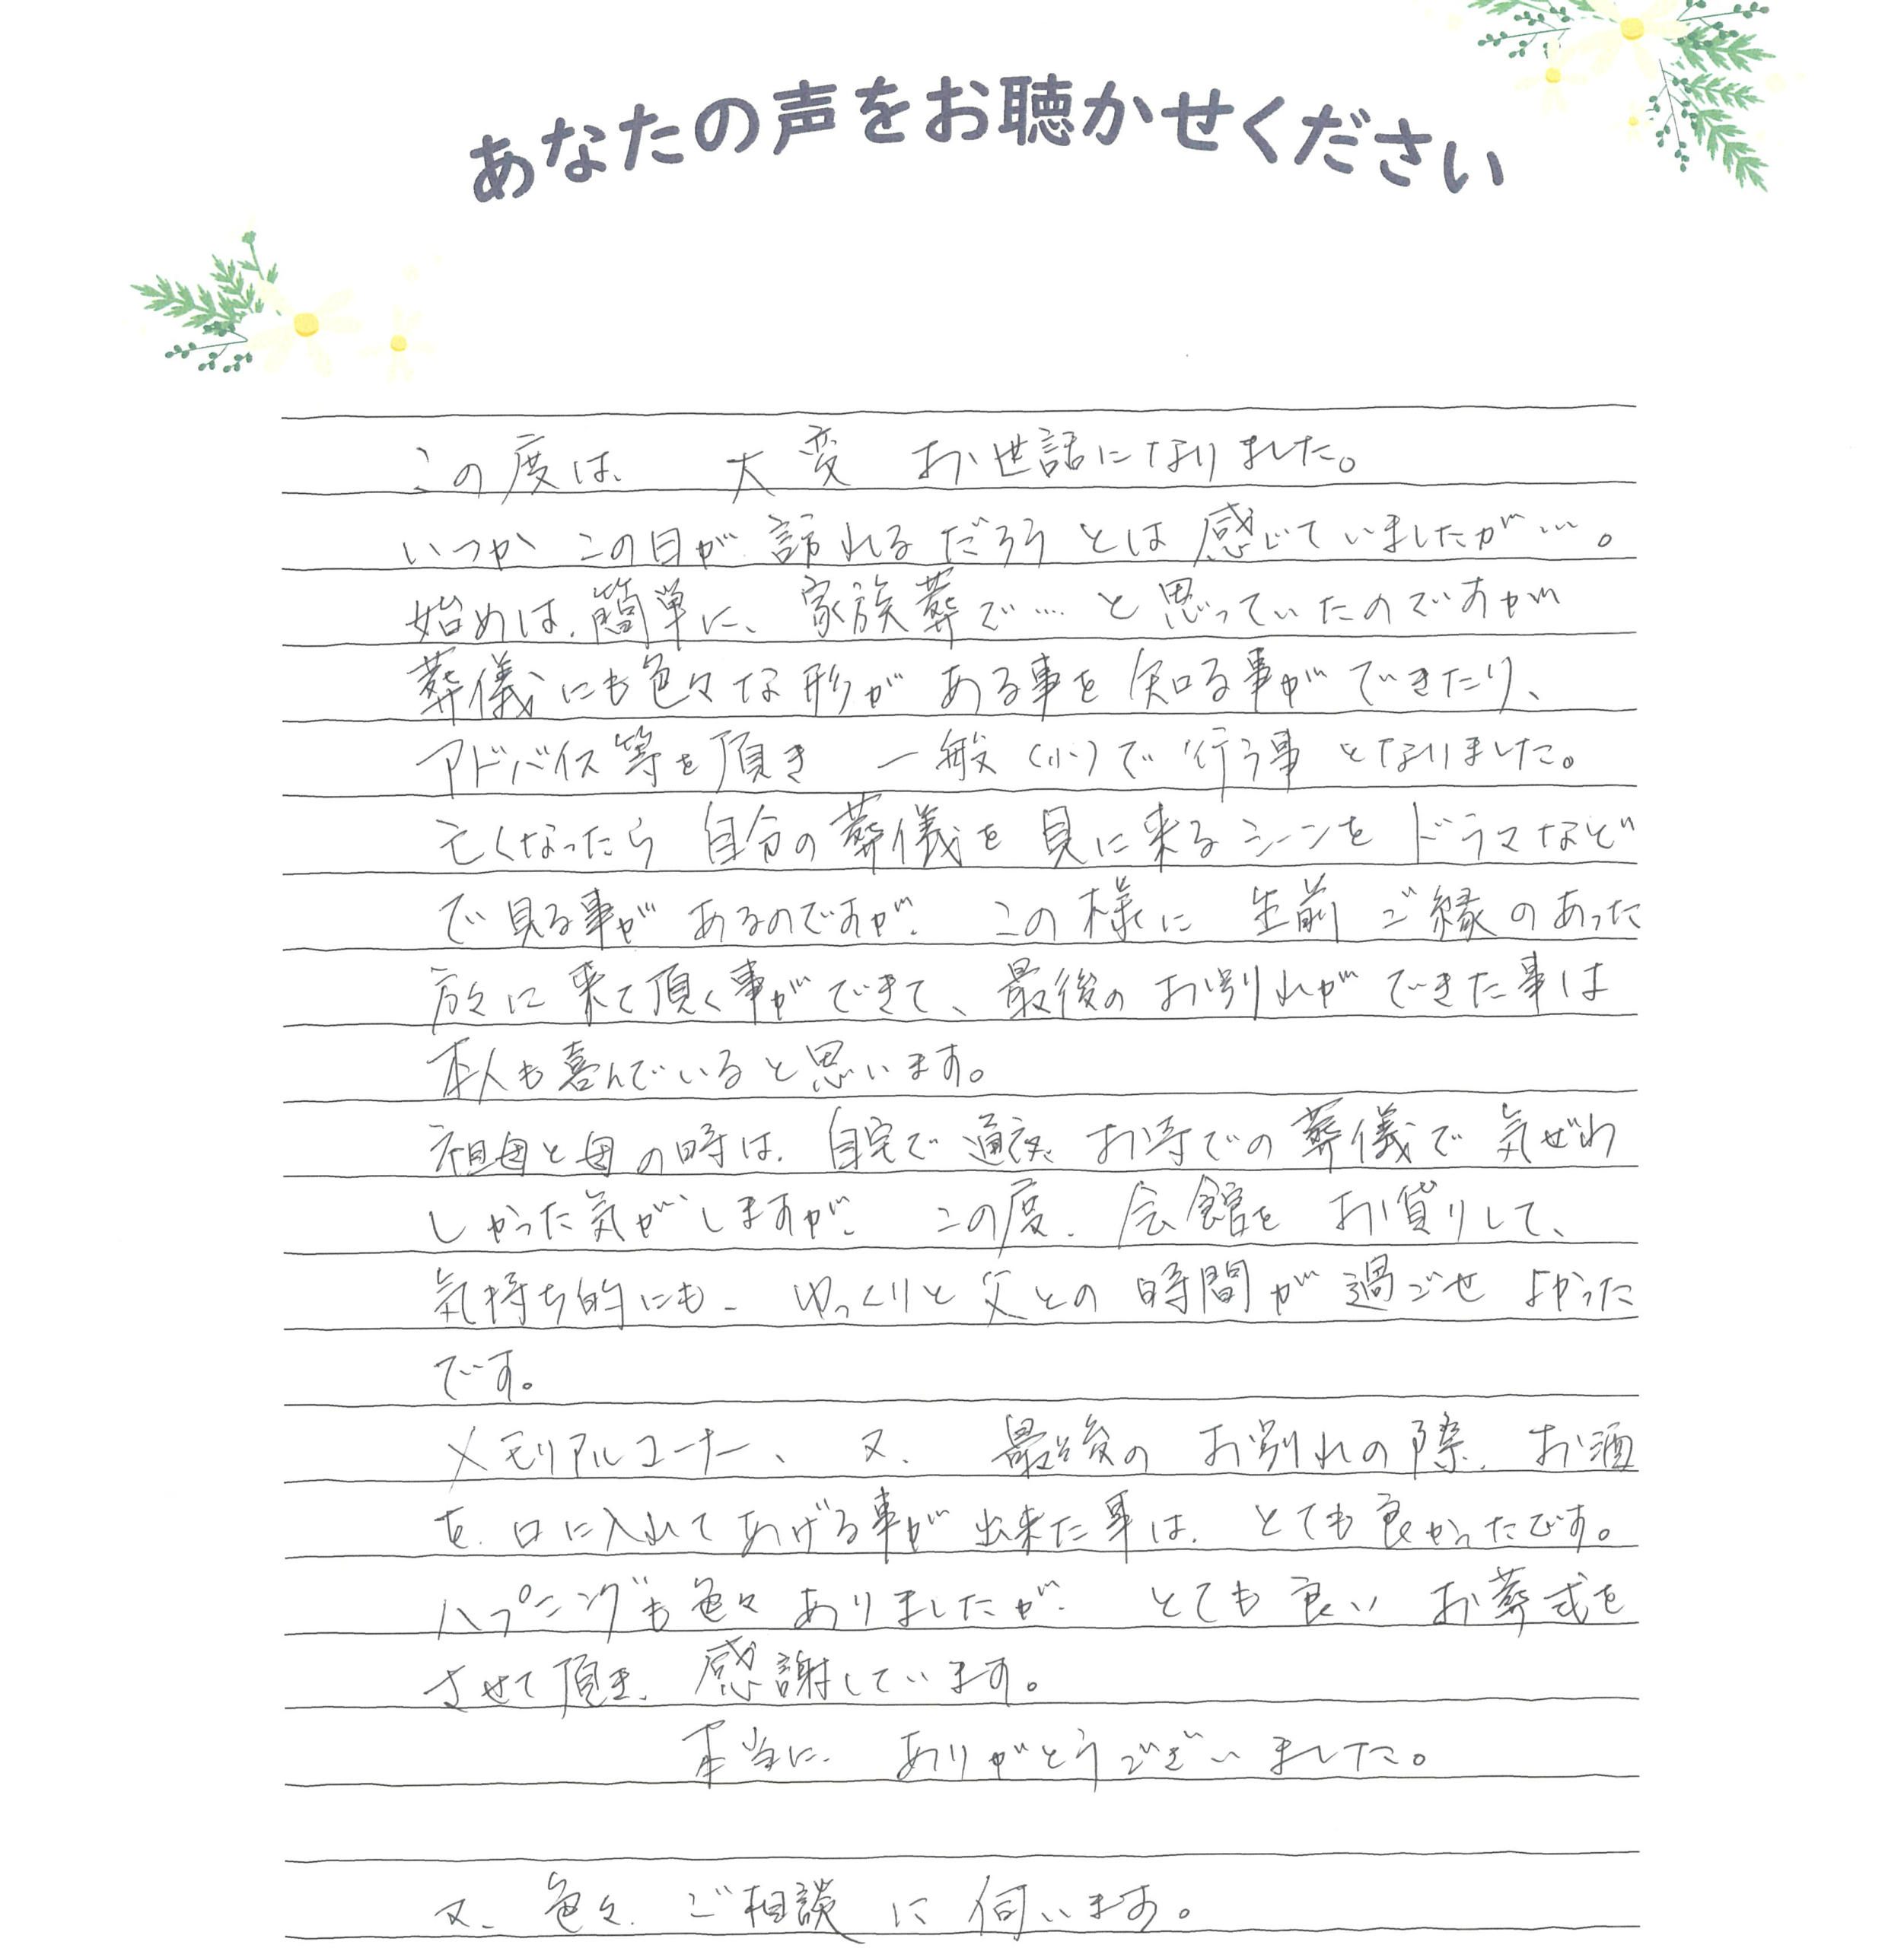 あなたの声をお聴かせください
この度は、 大変 お世話になりました。
いつか この日が 訪れるだろう とは 感じていましたが…。
始めは、簡単に、家族葬で… と思っていたのですが
葬儀にも色々な形が ある事を 知る事ができたり、
アドバイス等を頂き 一般(小)で 行う事 となりました。
亡くなったら 自分の葬儀を 見に来るシーンを ドラマなど
で 見る事が あるのですが、 この様に 生前 ご縁のあった
方々に 来て頂く事ができて、最後の お別れが できた事は
本人も喜んでいると思います。
祖母と母の時は、自宅で通夜、お寺での葬儀で 気ぜわ
しかった気がしますが、 この度、会館を お貸りして、
気持ち的にも、ゆっくりと父との時間が 過ごせ よかった
です。
メモリアルコーナー、又、 最後の お別れの際、お酒
を、口に入れてあげる事が 出来た事は、とても良かったです。
ハプニングも色々 ありましたが、 とても 良い お葬式を
させて頂き、感謝しています。
本当に、 ありがとうございました。
又、色々、ご相談 に 伺います。